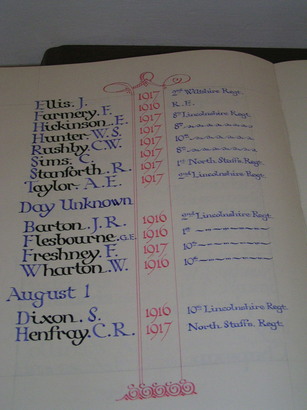 Ellis. J. 1917 2nd Wiltshire Regt.
Farmery. F. 1916 R.E.
Hickinson. E. 1917 8th Lincolnshire Regt.
Hunter. W. S. 1917 8th
Rushby. C.W. 1917 10th
Sims. C. 1917 8th
Stanforth. R. 1917 1st North Staffs. Regt.
Taylor. A. E. 1917 2nd Lincolnshire Regt.
Day Unknown
Barton. J. R. 1916 2nd Lincolnshire Regt.
Flesbourne. G.E. 1916 1st
Freshney. F. 1917 10th
Wharton. W. 1916 10th
August 1
Dixon. S. 1916 10th Lincolnshire Regt.
Henfray. C. R. 1917 North Staffs. Regt.